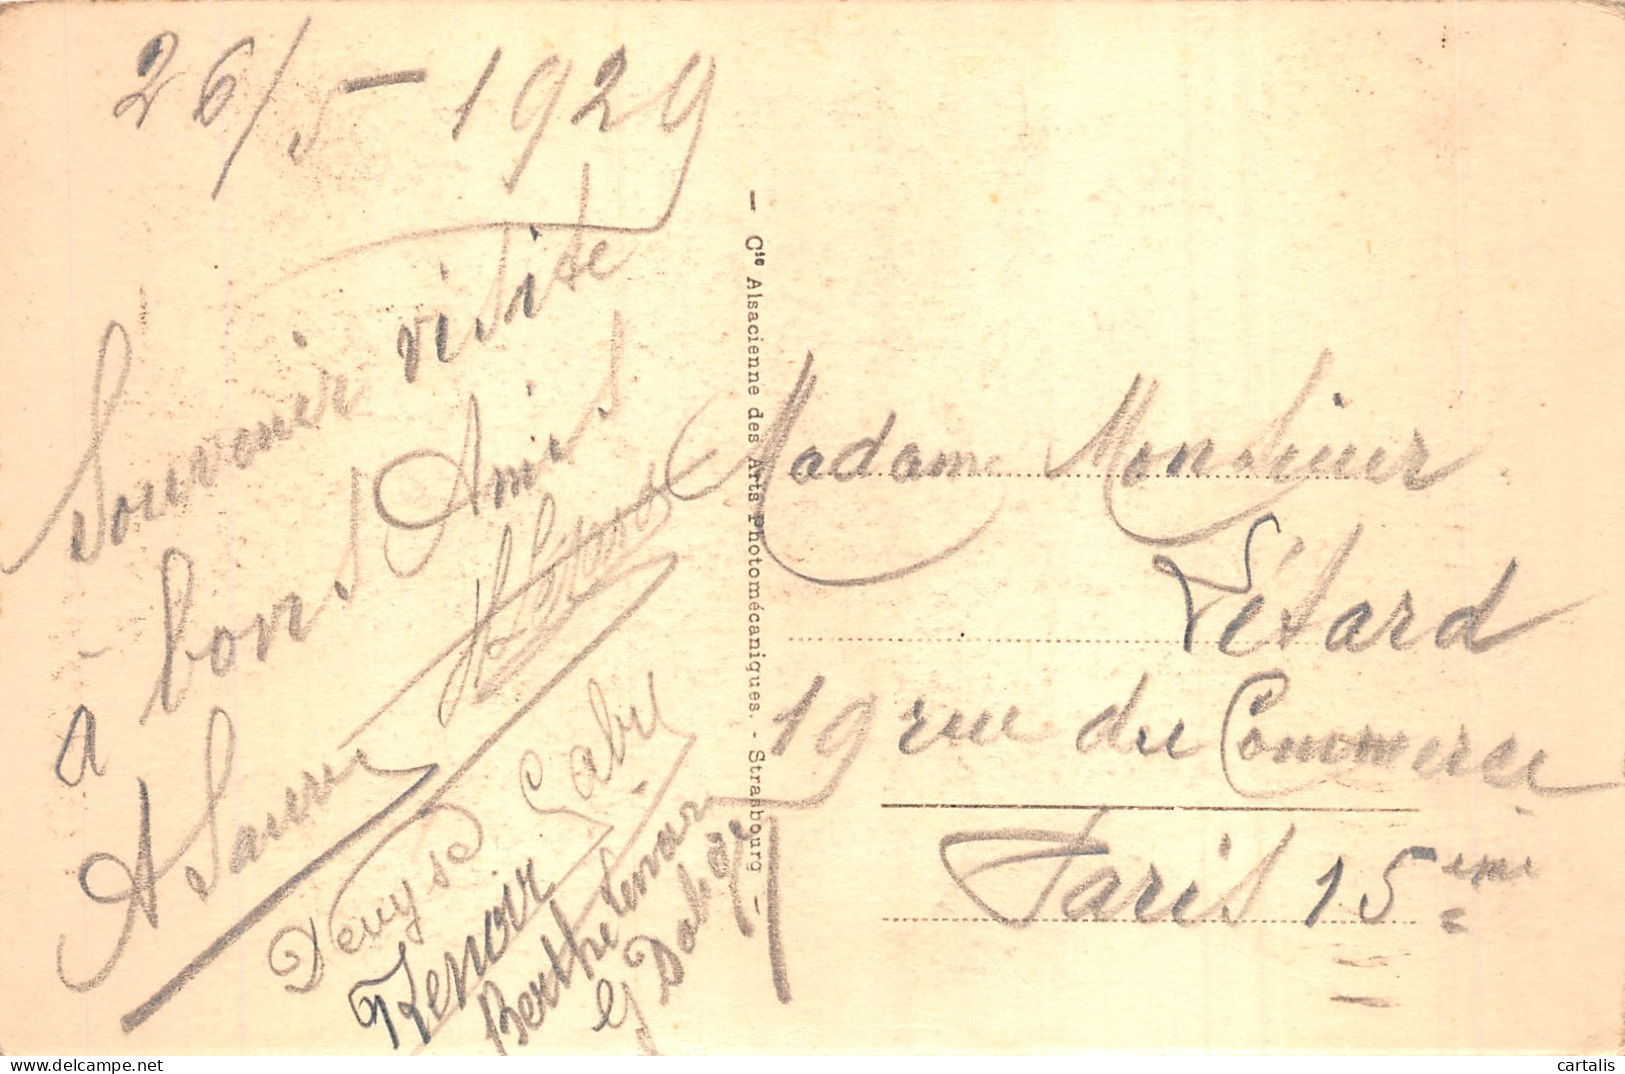 26/5-1929
Souvenir visite
à bons Amis
A Sauve
Denyse Gabry
Renoir
Berthe
G
— Cie Alsacienne des Arts Photomécaniques. - Strasbourg —
Madame Monsieur
Létard
19 rue du Commerce
Paris 15eme
cartalis